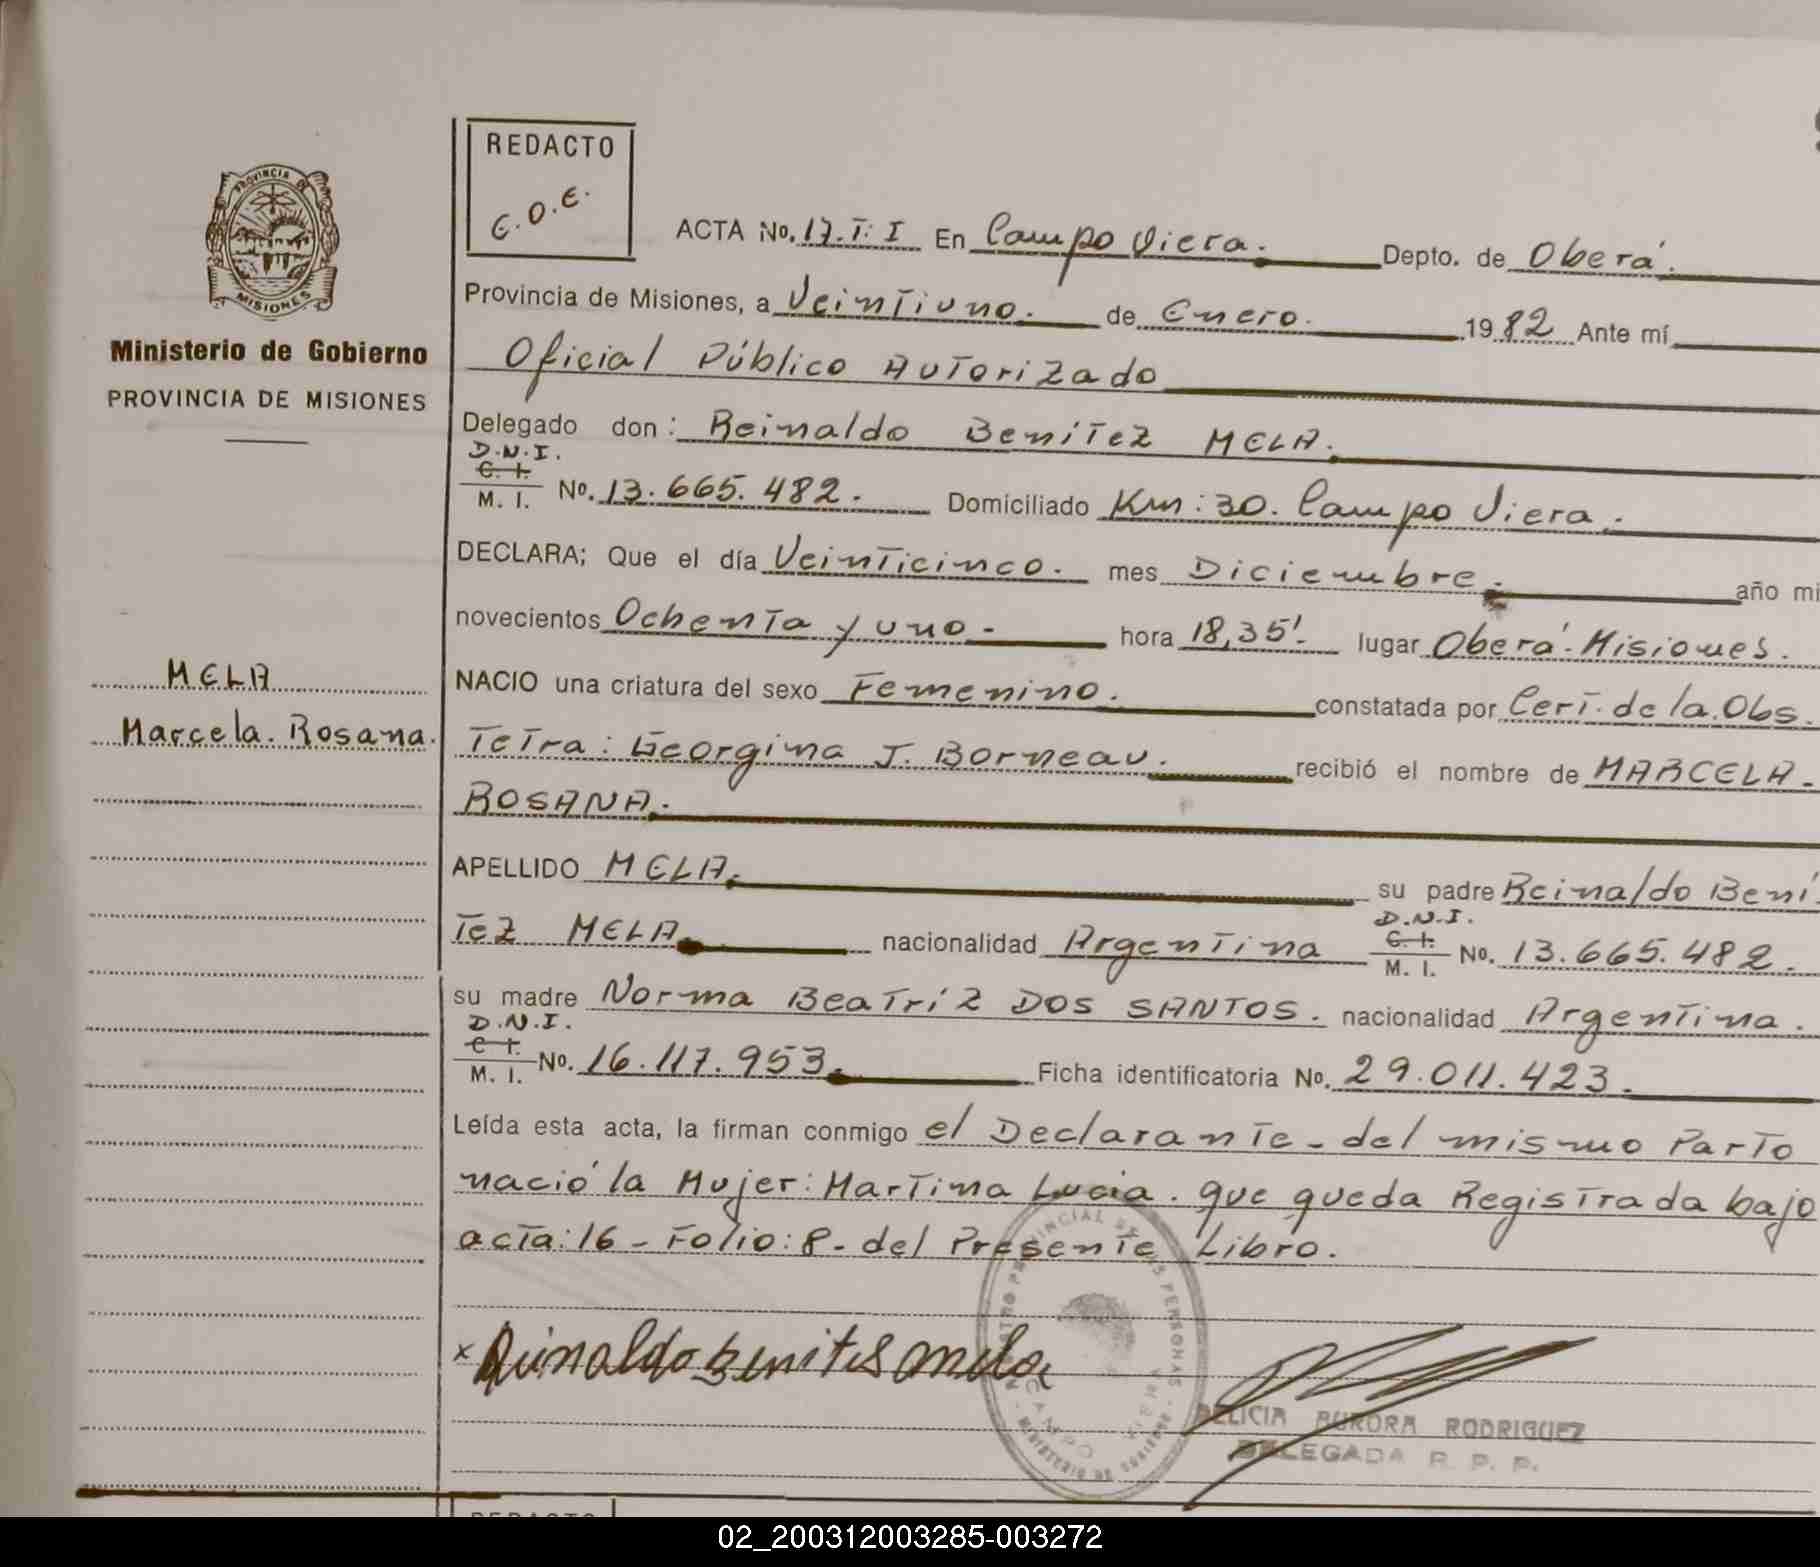 REDACTO
E.O.E.
PROVINCIA DE
MISIONES
Ministerio de Gobierno
PROVINCIA DE MISIONES
MELA
Marcela. Rosana.
ACTA No. 17. T: I En Campo Viera. Depto. de Oberá.
Provincia de Misiones, a Veintiuno. de Enero. 1982 Ante mí
Oficial Público Autorizado
Delegado don: Reinaldo Benítez MELA.
D.N.I.
C. I.
M. I. No. 13.665.482. Domiciliado Km: 30. Campo Viera.
DECLARA; Que el día Veinticinco. mes Diciembre. año mi
novecientos Ochenta y uno- hora 18,35'. lugar Oberá-Misiones.
NACIO una criatura del sexo Femenino. constatada por Cert. de la Obs.
Tetra: Georgina J. Borneau. recibió el nombre de MARCELA-
ROSANA.
APELLIDO MELA. su padre Reinaldo Bení
tez MELA. nacionalidad Argentina D.N.I. C. I. M. I. No. 13.665.482.
su madre Norma Beatríz DOS SANTOS. nacionalidad Argentina.
D.N.I.
C I.
M. I. No. 16.117.953. Ficha identificatoria No. 29.011.423.
Leída esta acta, la firman conmigo el Declarante-del mismo Parto
nació la Mujer: Martina Lucia. que queda Registrada bajo
acta:16-Folio:8-del Presente Libro.
x Reinaldo benites mela
CAMPO
DELICIA AURORA RODRIGUEZ
DELEGADA R. P. P.
REDACTO
02_200312003285-003272